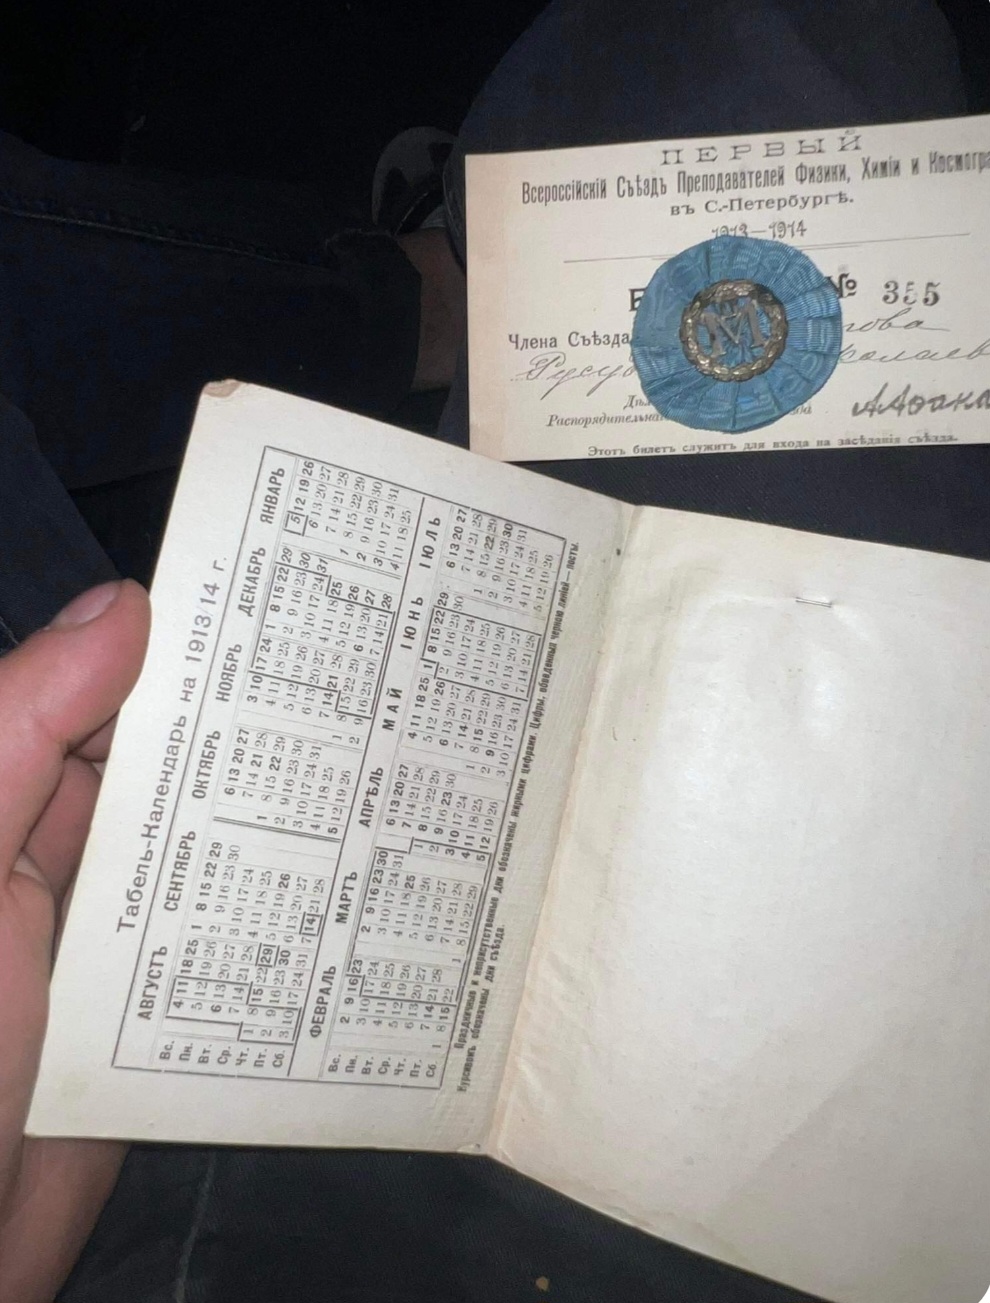 ПЕРВЫЙ
Всероссійскій Съѣздъ Преподавателей Физики, Химіи и Космогра
въ С.-Петербургѣ.
1913—1914
№ 355
Члена Съѣзда
Распорядительна
Этотъ билетъ служитъ для входа на засѣданія съѣзда.
Табель-Календарь на 1913/14 г.
АВГУСТЪ СЕНТЯБРЬ ОКТЯБРЬ НОЯБРЬ ДЕКАБРЬ ЯНВАРЬ
Вс. 4 11 18 25 1 8 15 22 29 6 13 20 27 3 10 17 24 1 8 15 22 29 5 12 19 26
Пн. 5 12 19 26 2 9 16 23 30 7 14 21 28 4 11 18 25 2 9 16 23 30 6 13 20 27
Вт. 6 13 20 27 3 10 17 24 1 8 15 22 29 5 12 19 26 3 10 17 24 31 7 14 21 28
Ср. 7 14 21 28 4 11 18 25 2 9 16 23 30 6 13 20 27 4 11 18 25 1 8 15 22 29
Чт. 1 8 15 22 29 5 12 19 26 3 10 17 24 31 7 14 21 28 5 12 19 26 2 9 16 23 30
Пт. 2 9 16 23 30 6 13 20 27 4 11 18 25 1 8 15 22 29 6 13 20 27 3 10 17 24 31
Сб. 3 10 17 24 31 7 14 21 28 5 12 19 26 2 9 16 23 30 7 14 21 28 4 11 18 25
ФЕВРАЛЬ МАРТЪ АПРѢЛЬ МАЙ ІЮНЬ ІЮЛЬ
Вс. 2 9 16 23 2 9 16 23 30 6 13 20 27 4 11 18 25 1 8 15 22 29 6 13 20 27
Пн. 3 10 17 24 3 10 17 24 31 7 14 21 28 5 12 19 26 2 9 16 23 30 7 14 21 28
Вт. 4 11 18 25 4 11 18 25 1 8 15 22 29 6 13 20 27 3 10 17 24 1 8 15 22 29
Ср. 5 12 19 26 5 12 19 26 2 9 16 23 30 7 14 21 28 4 11 18 25 2 9 16 23 30
Чт. 6 13 20 27 6 13 20 27 3 10 17 24 1 8 15 22 29 5 12 19 26 3 10 17 24 31
Пт. 7 14 21 28 7 14 21 28 4 11 18 25 2 9 16 23 30 6 13 20 27 4 11 18 25
Сб. 1 8 15 22 1 8 15 22 29 5 12 19 26 3 10 17 24 31 7 14 21 28 5 12 19 26
Праздничные и неприсутственные дни обозначены жирными цифрами. Цифры, обведенныя черною линіей — посты.
Курсивомъ обозначены дни съѣзда.